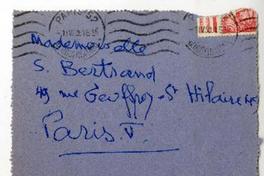 PARIS
Mademoiselle
S. Bertrand
49 rue Geoffroy-St Hilaire
Paris V.